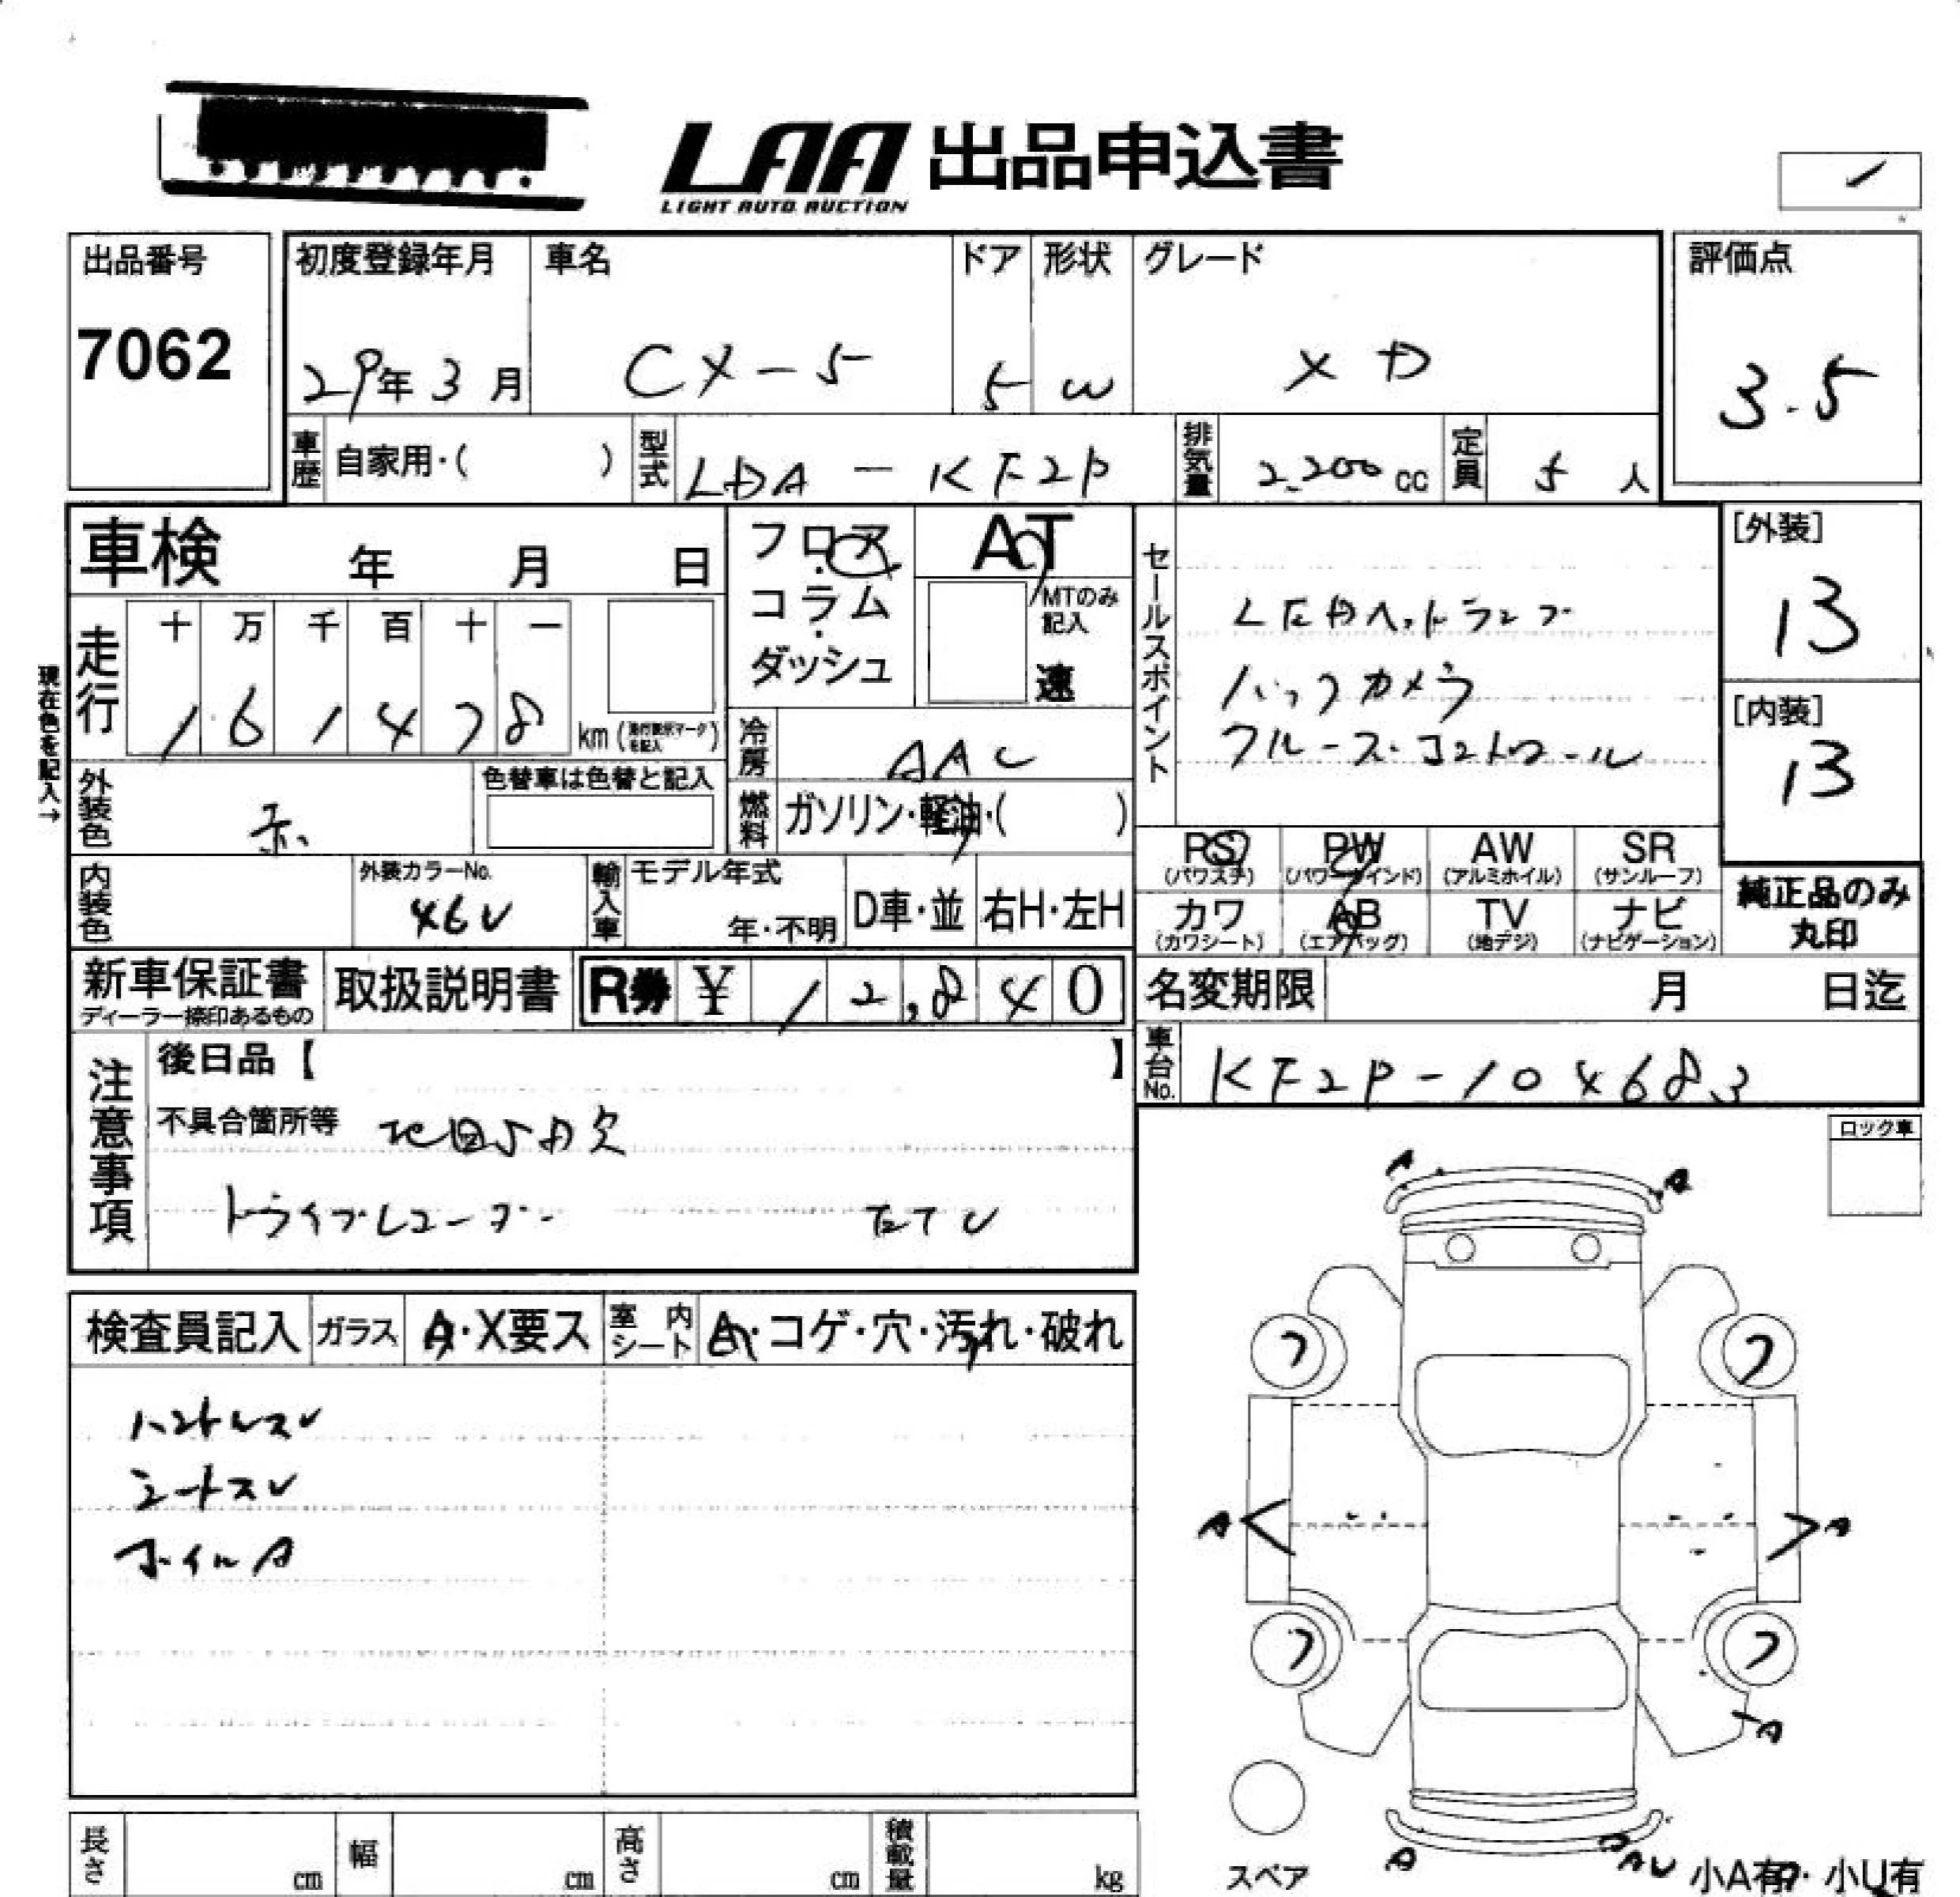 LAA 出品申込書
LIGHT AUTO AUCTION
出品番号
7062
初度登録年月
29年3月
車名
CX-5
ドア
5
形状
W
グレード
XD
評価点
3.5
車歴 自家用・( )
型式 LDA-KF2P
排気量 2,200cc
定員 5人
車検 年 月 日
現在色を記入→
走行
十 万 千 百 十 一
1 6 1 4 7 8 km(走行表示マークを記入)
フロア・コラム・ダッシュ
AT
MTのみ記入
速
冷房 AAC
燃料 ガソリン・軽油・( )
セールスポイント
LEDヘッドランプ
バックカメラ
クルーズ・コントロール
[外装]
13
[内装]
13
外装色 赤
色替車は色替と記入
内装色
外装カラーNo.
46V
輸入車
モデル年式
年・不明
D車・並
右H・左H
PS (パワステ)
PW (パワーウインド)
AW (アルミホイル)
SR (サンルーフ)
カワ (カワシート)
AB (エアバッグ)
TV (地デジ)
ナビ (ナビゲーション)
純正品のみ丸印
新車保証書
ディーラー捺印あるもの
取扱説明書
R券 ¥ 12,840
名変期限 月 日迄
車台No. KF2P-104683
注意事項
後日品【 】
不具合箇所等 地図SD欠
ドライブレコーダー ETC
ロック車
検査員記入
ガラス A・X要ス
室内シート A・コゲ・穴・汚れ・破れ
ハンドルスレ
シートスレ
ホイルA
A
A
フ
フ
A
A
フ
フ
A
A
AU
スペア
小A有・小U有
長さ cm
幅 cm
高さ cm
積載量 kg